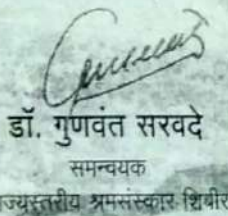 डॉ. गुणवंत सरवदे
समन्वयक
ज्यस्तरीय श्रमसंस्कार शिबीर